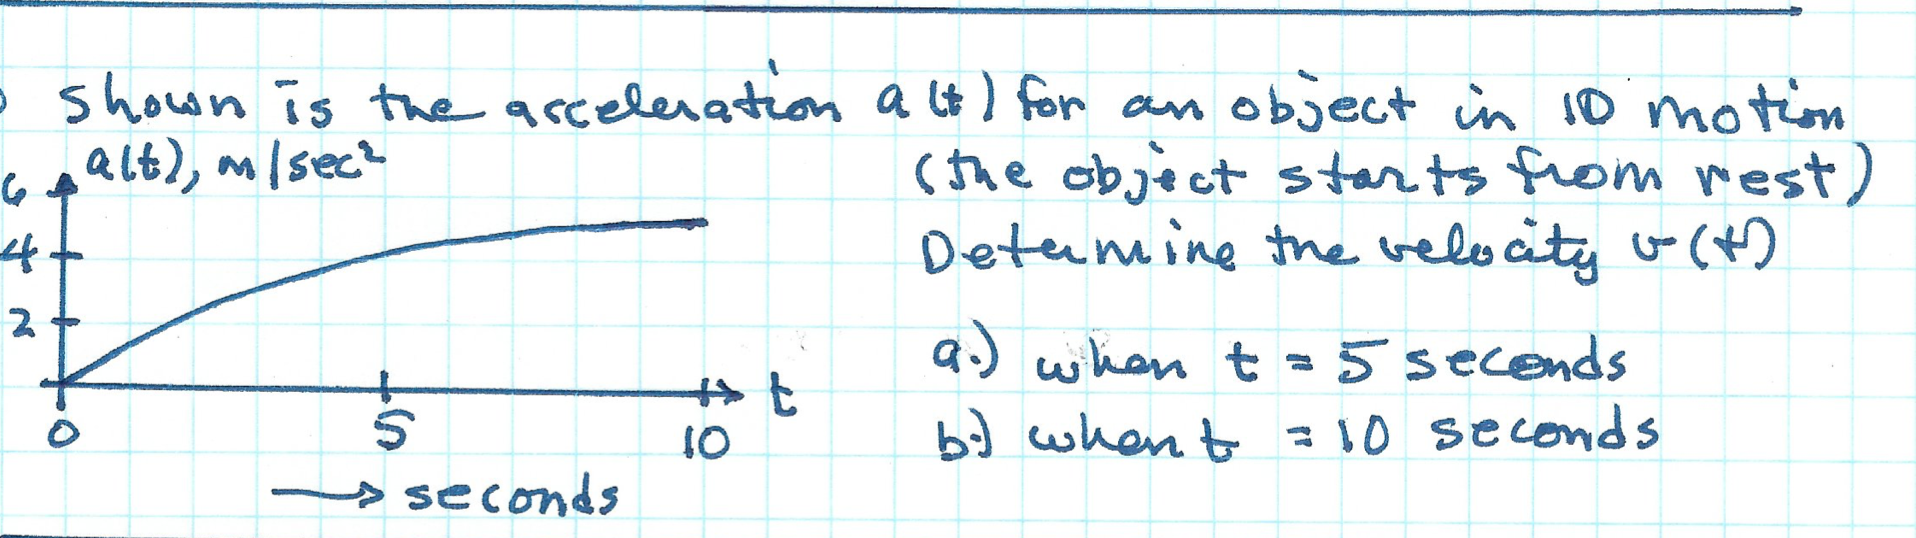 shown is the acceleration a(t) for an object in 1D motion
a(t), m/sec²
(the object starts from rest)
6
Determine the velocity v(t)
4
2
a.) when t = 5 seconds
t
0
5
10
b.) when t = 10 seconds
→ seconds